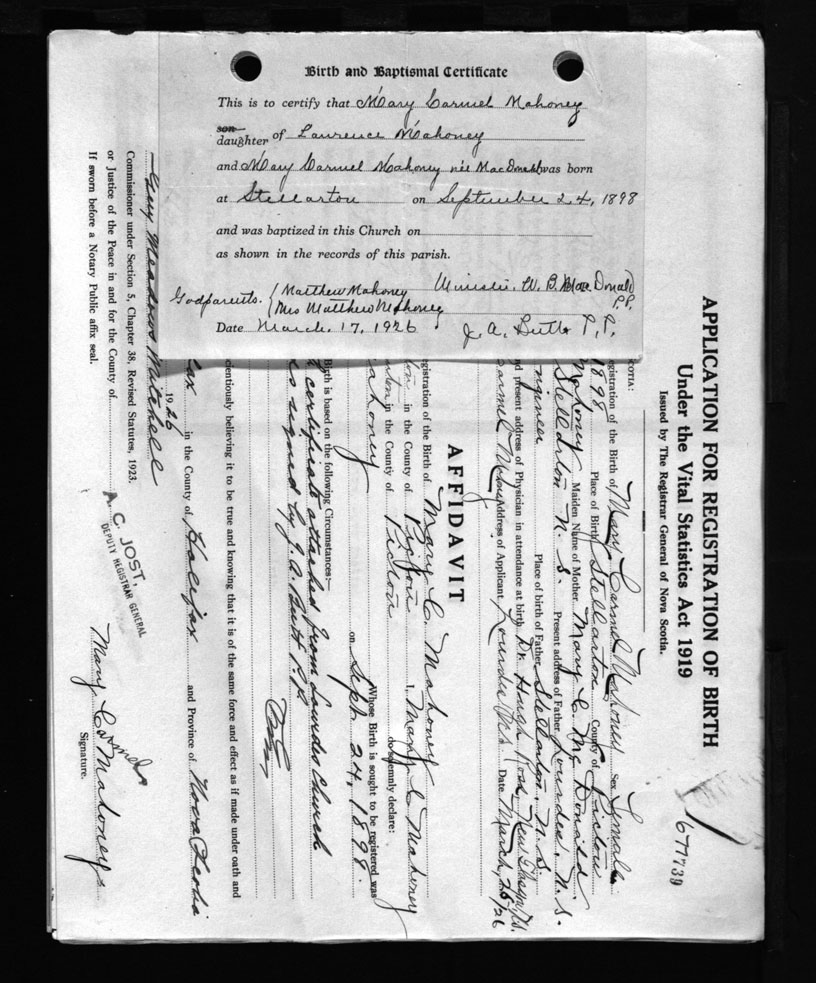 Birth and Baptismal Certificate
This is to certify that Mary Carmel Mahoney
son
daughter of Laurence Mahoney
and Mary Carmel Mahoney née MacDonald was born
at Stellarton on September 24, 1898
and was baptized in this Church on
as shown in the records of this parish.
Minister. W. B. MacDonald P.P.
Godparents. { Matthew Mahoney
Mrs Matthew Mahoney
Date March, 17, 1926 J. A. Butts P.P.
APPLICATION FOR REGISTRATION OF BIRTH
Under the Vital Statistics Act 1919
Issued by The Registrar General of Nova Scotia.
677739
SCOTIA:
egistration of the Birth of Mary Carmel Mahoney Sex Female
1898 Place of Birth Stellarton County of Pictou
Mahoney Maiden Name of Mother Mary C. McDonald
Stellarton N. S. Present address of Father Lourdes, N. S.
ngineer Place of birth of Father Stellarton, N. S.
nd present address of Physician in attendance at birth Dr. Hugh Ross, New Glasgow, N.S.
Carmel Mahoney Address of Applicant Lourdes N.S. Date March, 26/26
AFFIDAVIT
gistration of the Birth of Mary C. Mahoney
in the County of Pictou I, Mary C Mahoney
in the County of Pictou do solemnly declare:
Whose Birth is sought to be registered was
ahoney on Sept. 24, 1898.
Birth is based on the following Circumstances:—
certificate attached from Lourdes Church
is signed by J. A. Butts P.P.
cientiously believing it to be true and knowing that it is of the same force and effect as if made under oath and
fax in the County of Halifax and Province of Nova Scotia
1926
Mary Carmel Mahoney
Signature.
A. C. JOST,
DEPUTY REGISTRAR GENERAL
Meadows Mitchell
Commissioner under Section 5, Chapter 38, Revised Statutes, 1923.
or Justice of the Peace in and for the County of
If sworn before a Notary Public affix seal.